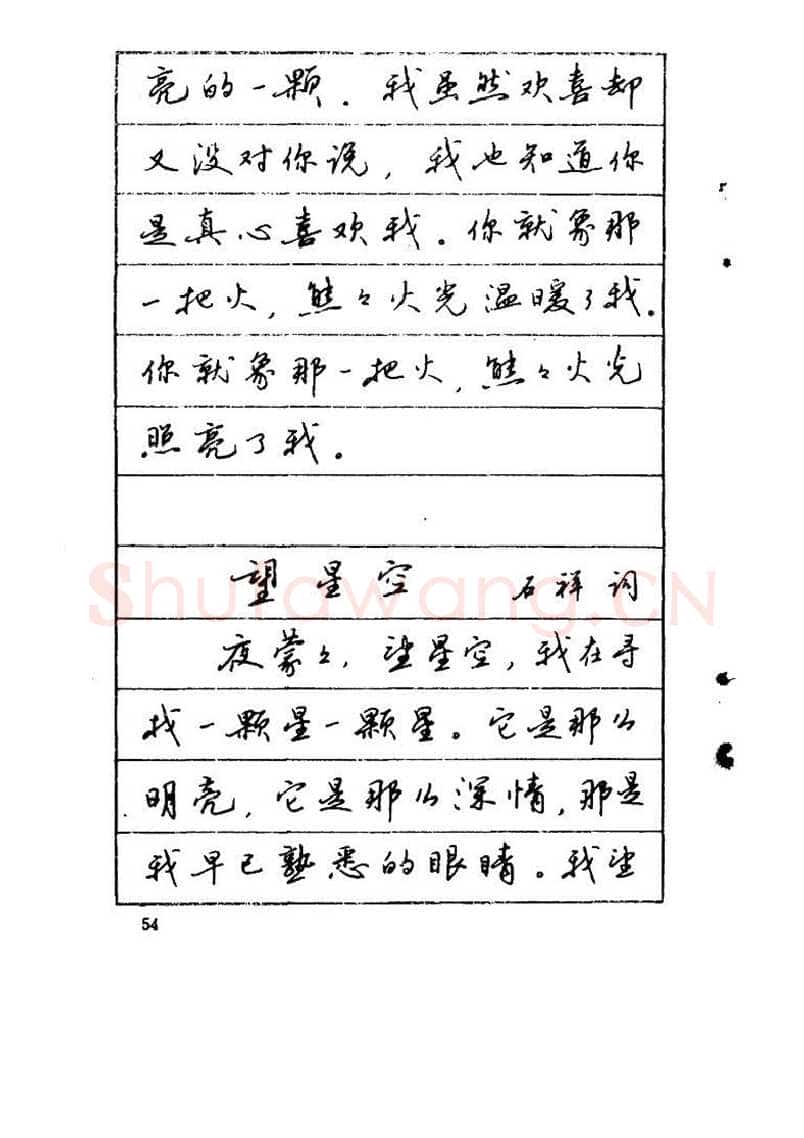 亮的一颗．我虽然欢喜却
又没对你说，我也知道你
是真心喜欢我。你就象那
一把火，熊々火光温暖了我。
你就象那一把火，熊々火光
照亮了我。
望星空 石祥词
夜蒙々，望星空，我在寻
找一颗星一颗星。它是那么
明亮，它是那么深情，那是
我早已熟悉的眼睛。我望
54
Shufawang.CN